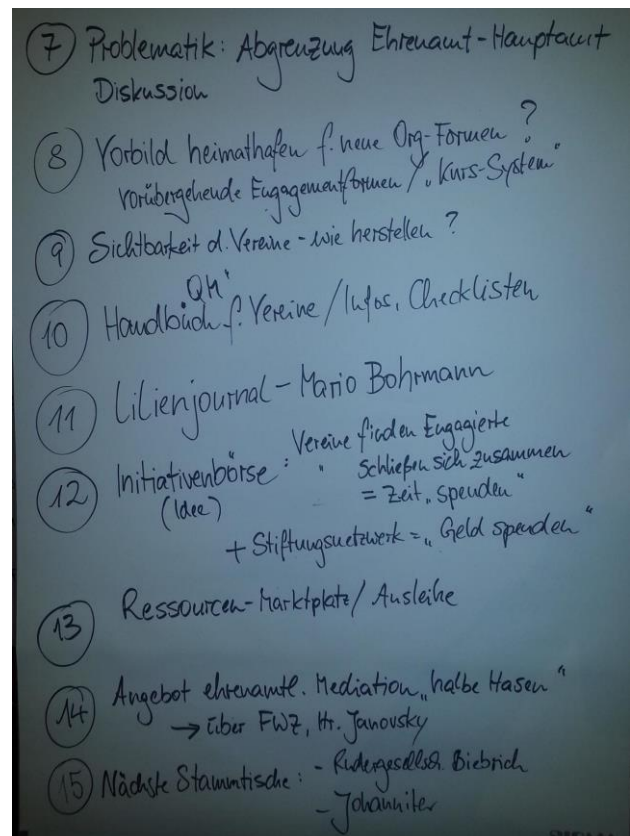 7 Problematik: Abgrenzung Ehrenamt-Hauptamt
Diskussion
8 Vorbild heimathafen f. neue Org-Formen ?
vorübergehende Engagementformen / "Kurs-System"
9 Sichtbarkeit d. Vereine - wie herstellen ?
QM
10 Handbuch f. Vereine / Infos, Checklisten
11 Lilienjournal - Mario Bohrmann
12 Initiativenbörse : Vereine finden Engagierte
(Idee) " schließen sich zusammen
= Zeit "spenden"
+ Stiftungsnetzwerk = "Geld spenden"
13 Ressourcen-Marktplatz / Ausleihe
14 Angebot ehrenamtl. Mediation "halbe Hasen"
→ über FWZ, Hr. Janovsky
15 Nächste Stammtische : - Rudergesellsch. Biebrich
- Johanniter